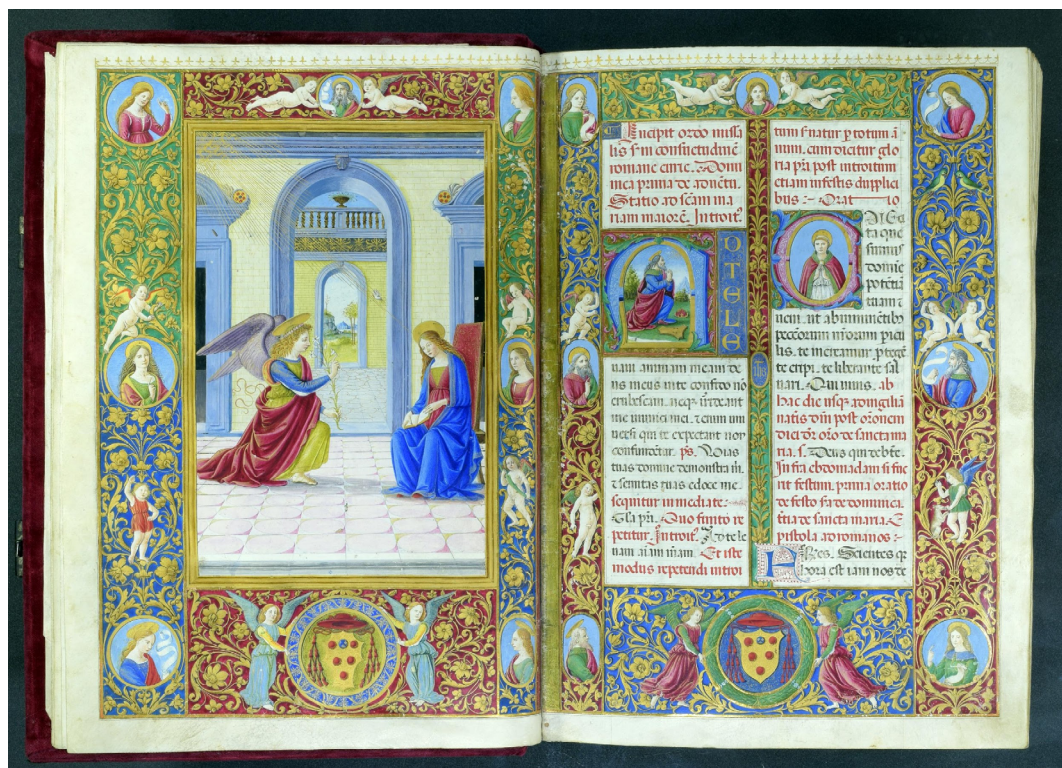 Incipit ordo missa
lis s̄m consuetudinē
romane curie. Domi
nica prima de adventu.
Statio ad scām ma
riam maiorē. Introit᷒.
AD TE LE
vavi animam meam de
us meus in te confido nō
erubescam. neq; irrideant
me inimici mei. etenim uni
versi qui te expectant non
confundētur. p̄s. Vias
tuas domine demonstra m̄.
⁊ semitas tuas edoce me.
sequitur inmediate.
Gl̄a pr̄i. Quo finito re
petitur. Introit᷒. Ad te le
vavi aīam m̄am. Et iste
modus repetendi introi
tum s̄natur p totum ā
num. cum dicitur glo
ria pr̄i post introitum
etiam in festis dupplici
bus :– Orat—io
EXCita
quesumus
domine
potētiā
tuam ⁊
veni. ut ab iminētibꝰ
peccatorum nr̄orum picu
lis. te mereamur ptegē
te eripi. te liberante sal
vari. Qui vivis. ab
hac die usq; ad vigiliā
natis dn̄i post orōnem
diei dr̄ orō de sancta ma
ria. s. Deus qui de bte.
Infra ebdomadam si fue
rit festum, prima oratio
de festo s̄a de dominica.
t̄tia de sancta maria. E
pistola ad romanos :–
FRes. Scientes q̄
hora est iam nos de
yhs